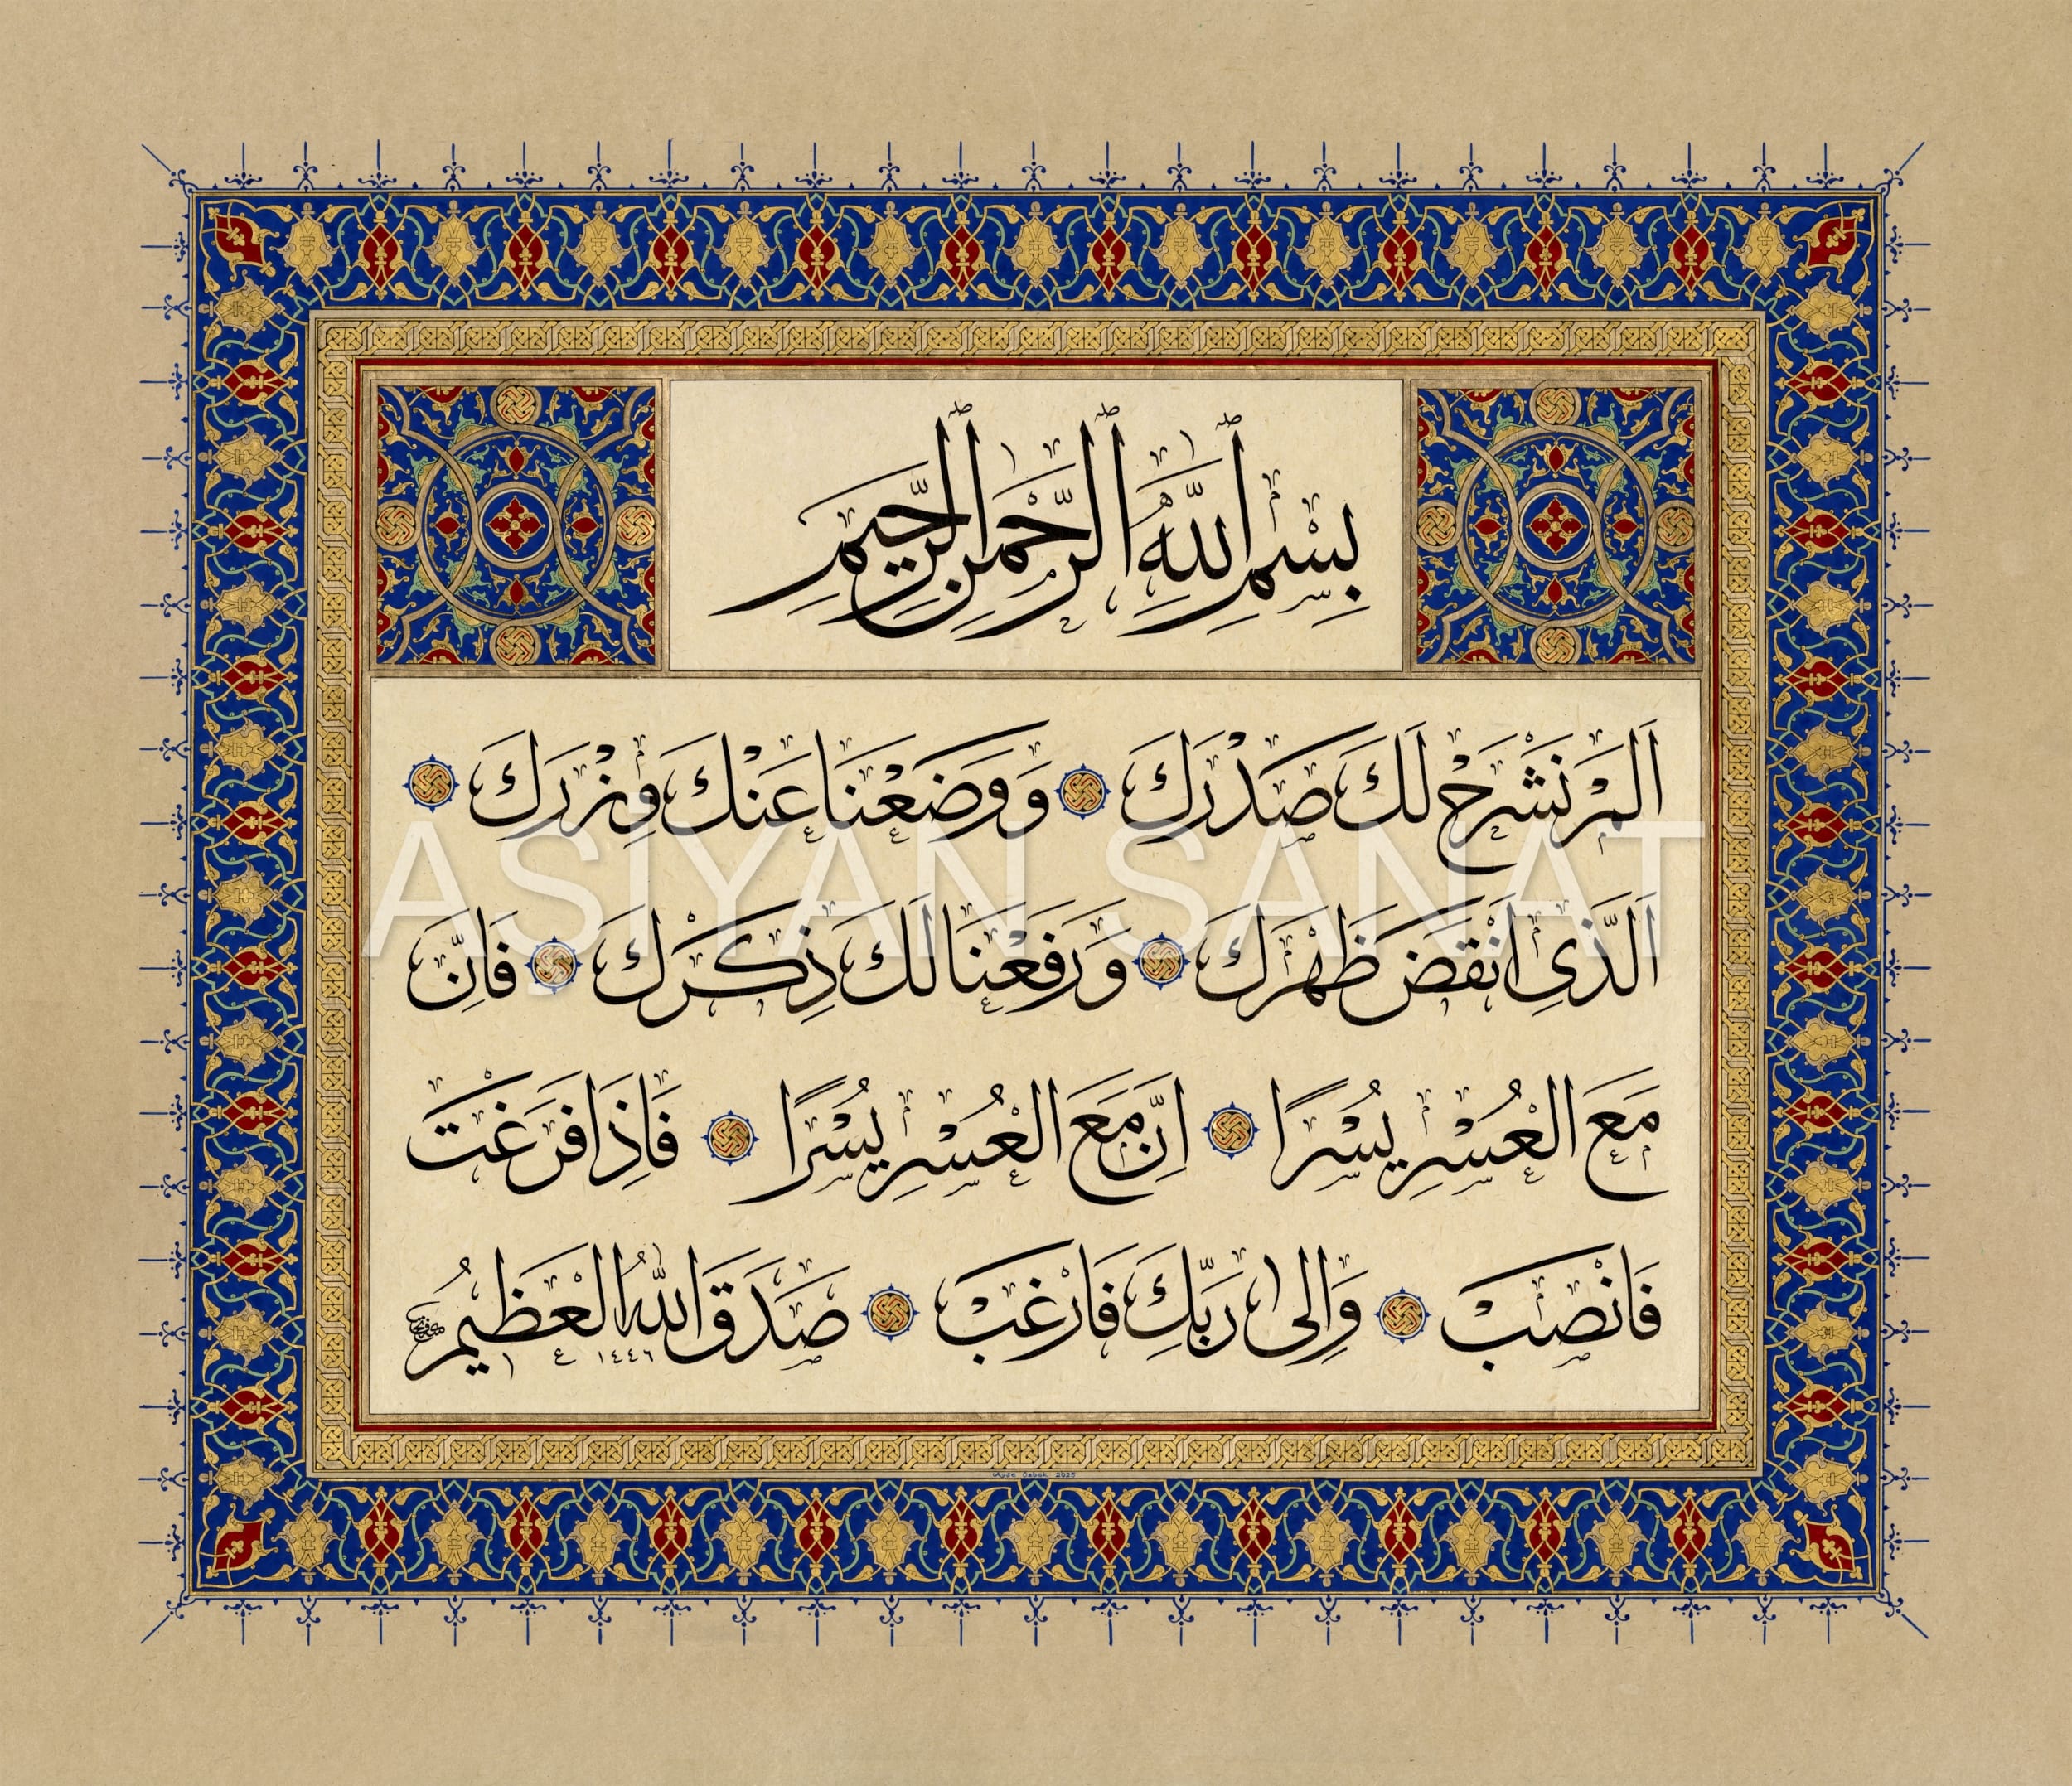 بِسْمِ اللّٰهِ الرَّحْمٰنِ الرَّحِيمِ
اَلَمْ نَشْرَحْ لَكَ صَدْرَكَ وَوَضَعْنَا عَنْكَ وِزْرَكَ
AŞİYAN SANAT
اَلَّذِى اَنْقَضَ ظَهْرَكَ وَرَفَعْنَا لَكَ ذِكْرَكَ فَاِنَّ
مَعَ الْعُسْرِ يُسْرًا اِنَّ مَعَ الْعُسْرِ يُسْرًا فَاِذَا فَرَغْتَ
فَانْصَبْ وَاِلٰى رَبِّكَ فَارْغَبْ صَدَقَ اللّٰهُ الْعَظِيمُ
١٤٤٦
2025